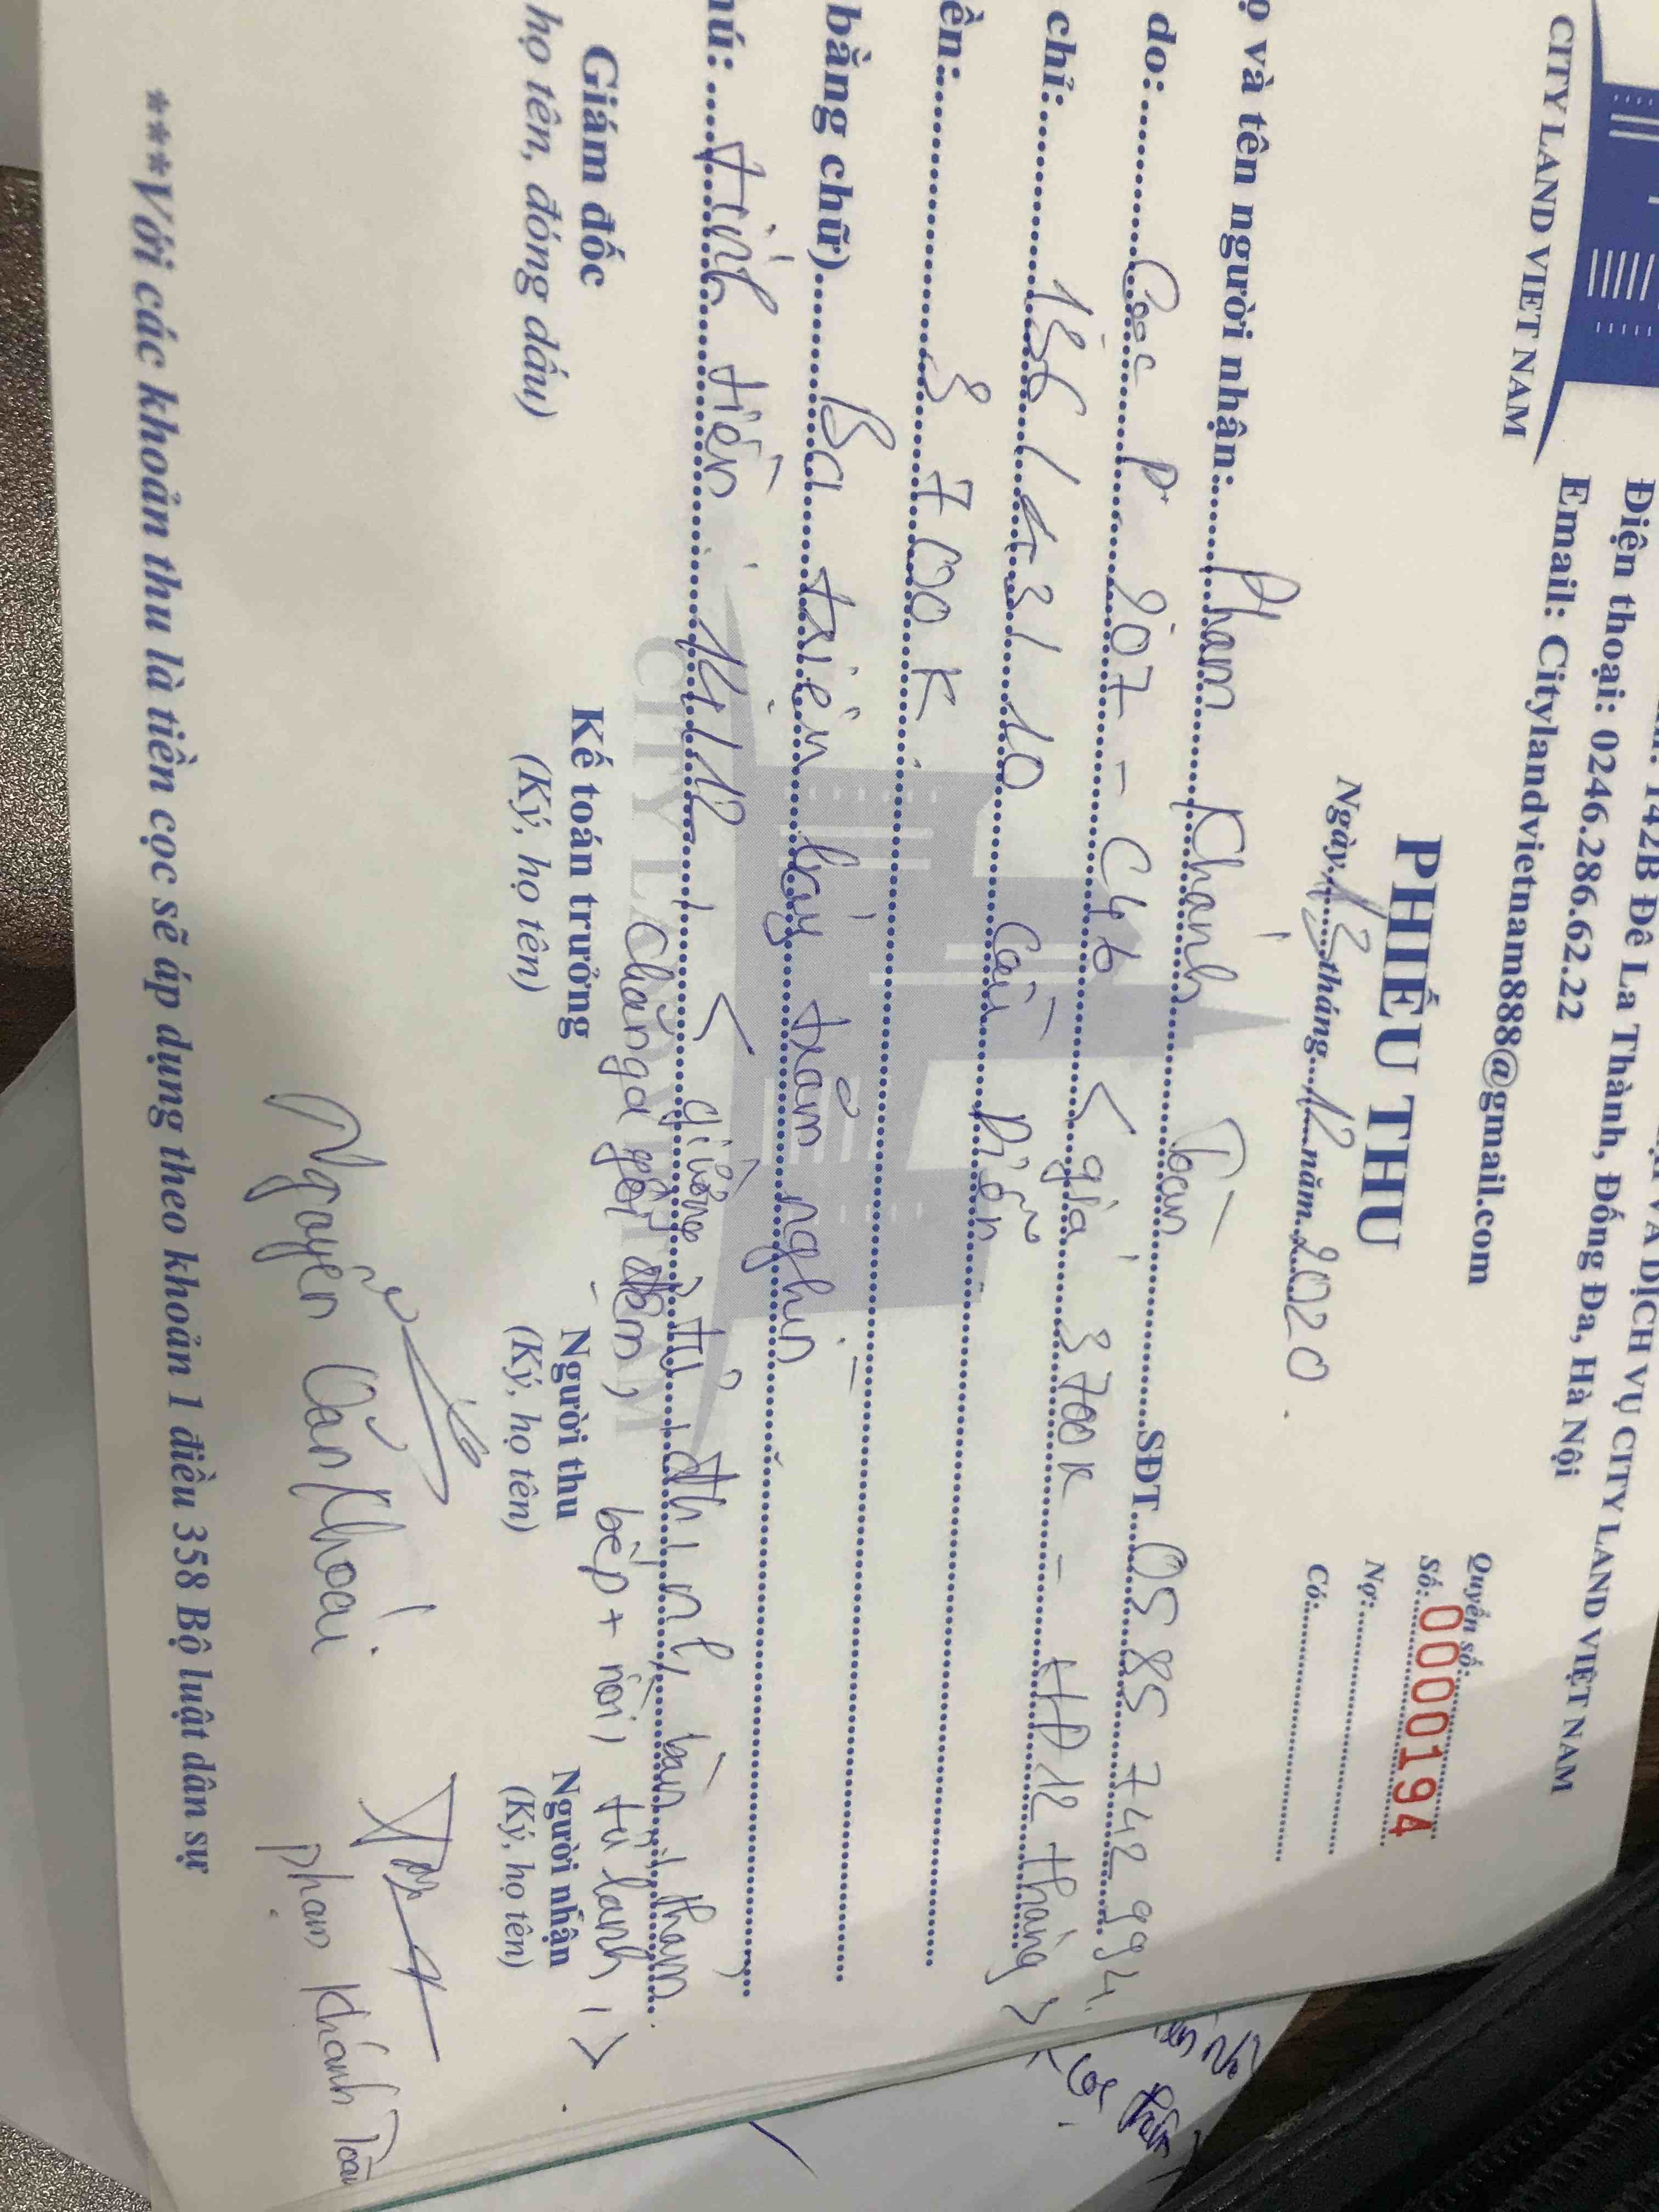 VÀ DỊCH VỤ CITY LAND VIỆT NAM
142B Đê La Thành, Đống Đa, Hà Nội
Điện thoại: 0246.286.62.22
Email: Citylandvietnam888@gmail.com
CITY LAND VIET NAM
Quyển số:
PHIẾU THU
Số: 0000194
Ngày 13 tháng 12 năm 2020
Nợ:
Có:
ọ và tên người nhận: Phạm Khánh Toàn
do: Cọc P. 207 - C46 SĐT 0585 742 994
chỉ: 136/43/10 Cầu Diễn < giá 3700K - HĐ 12 tháng >
ền: 3700K
bằng chữ) Ba triệu bảy trăm nghìn
hú: tính tiền 14/12 < giường, tủ, bàn
Chăn ga gối đệm, bếp + nồi, tủ lạnh, >
Giám đốc
Kế toán trưởng
Người thu
Người nhận
họ tên, đóng dấu)
(Ký, họ tên)
(Ký, họ tên)
(Ký, họ tên)
CITY LAND VIET NAM
Nguyễn Văn Khoái
phạm Khánh Toàn
***Với các khoản thu là tiền cọc sẽ áp dụng theo khoản 1 điều 358 Bộ luật dân sự